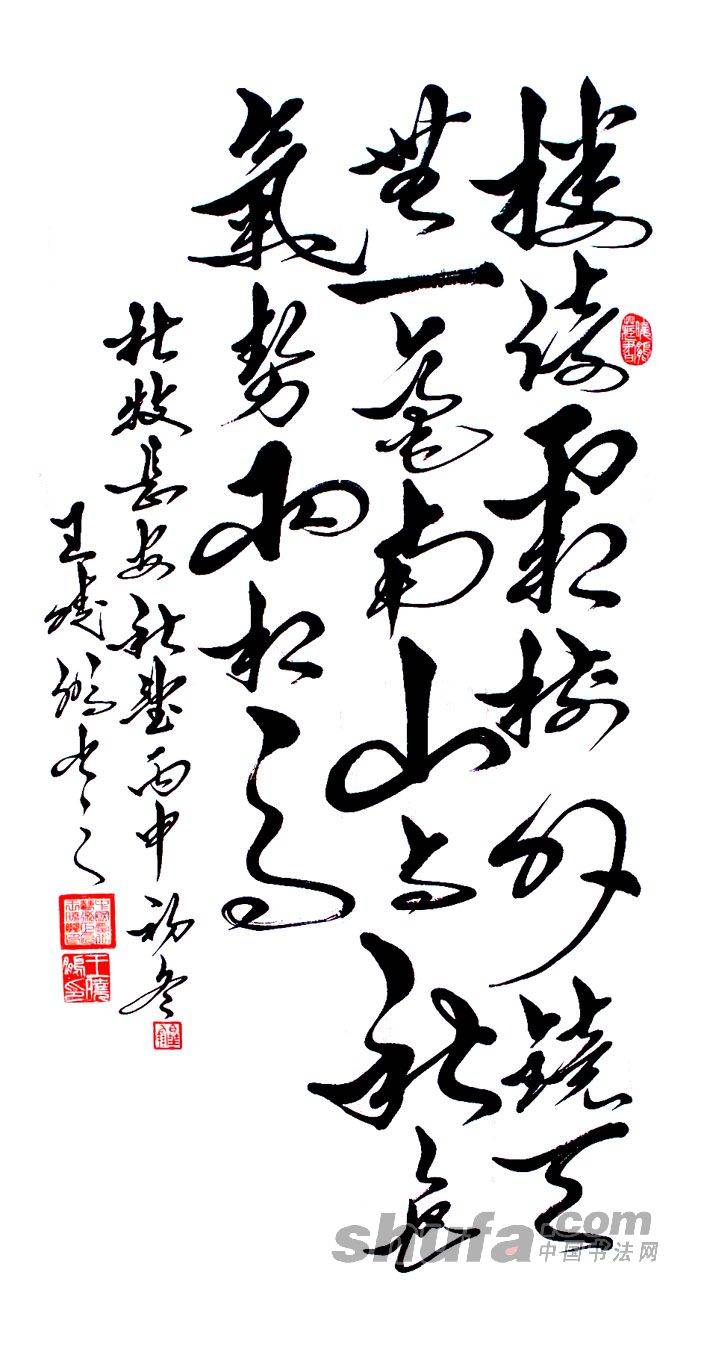 樓倚霜樹外鏡天
無一毫南山与秋色
氣勢兩相高
杜牧長安秋望丙申初冬
王曉書之
shufa.com
中国书法网